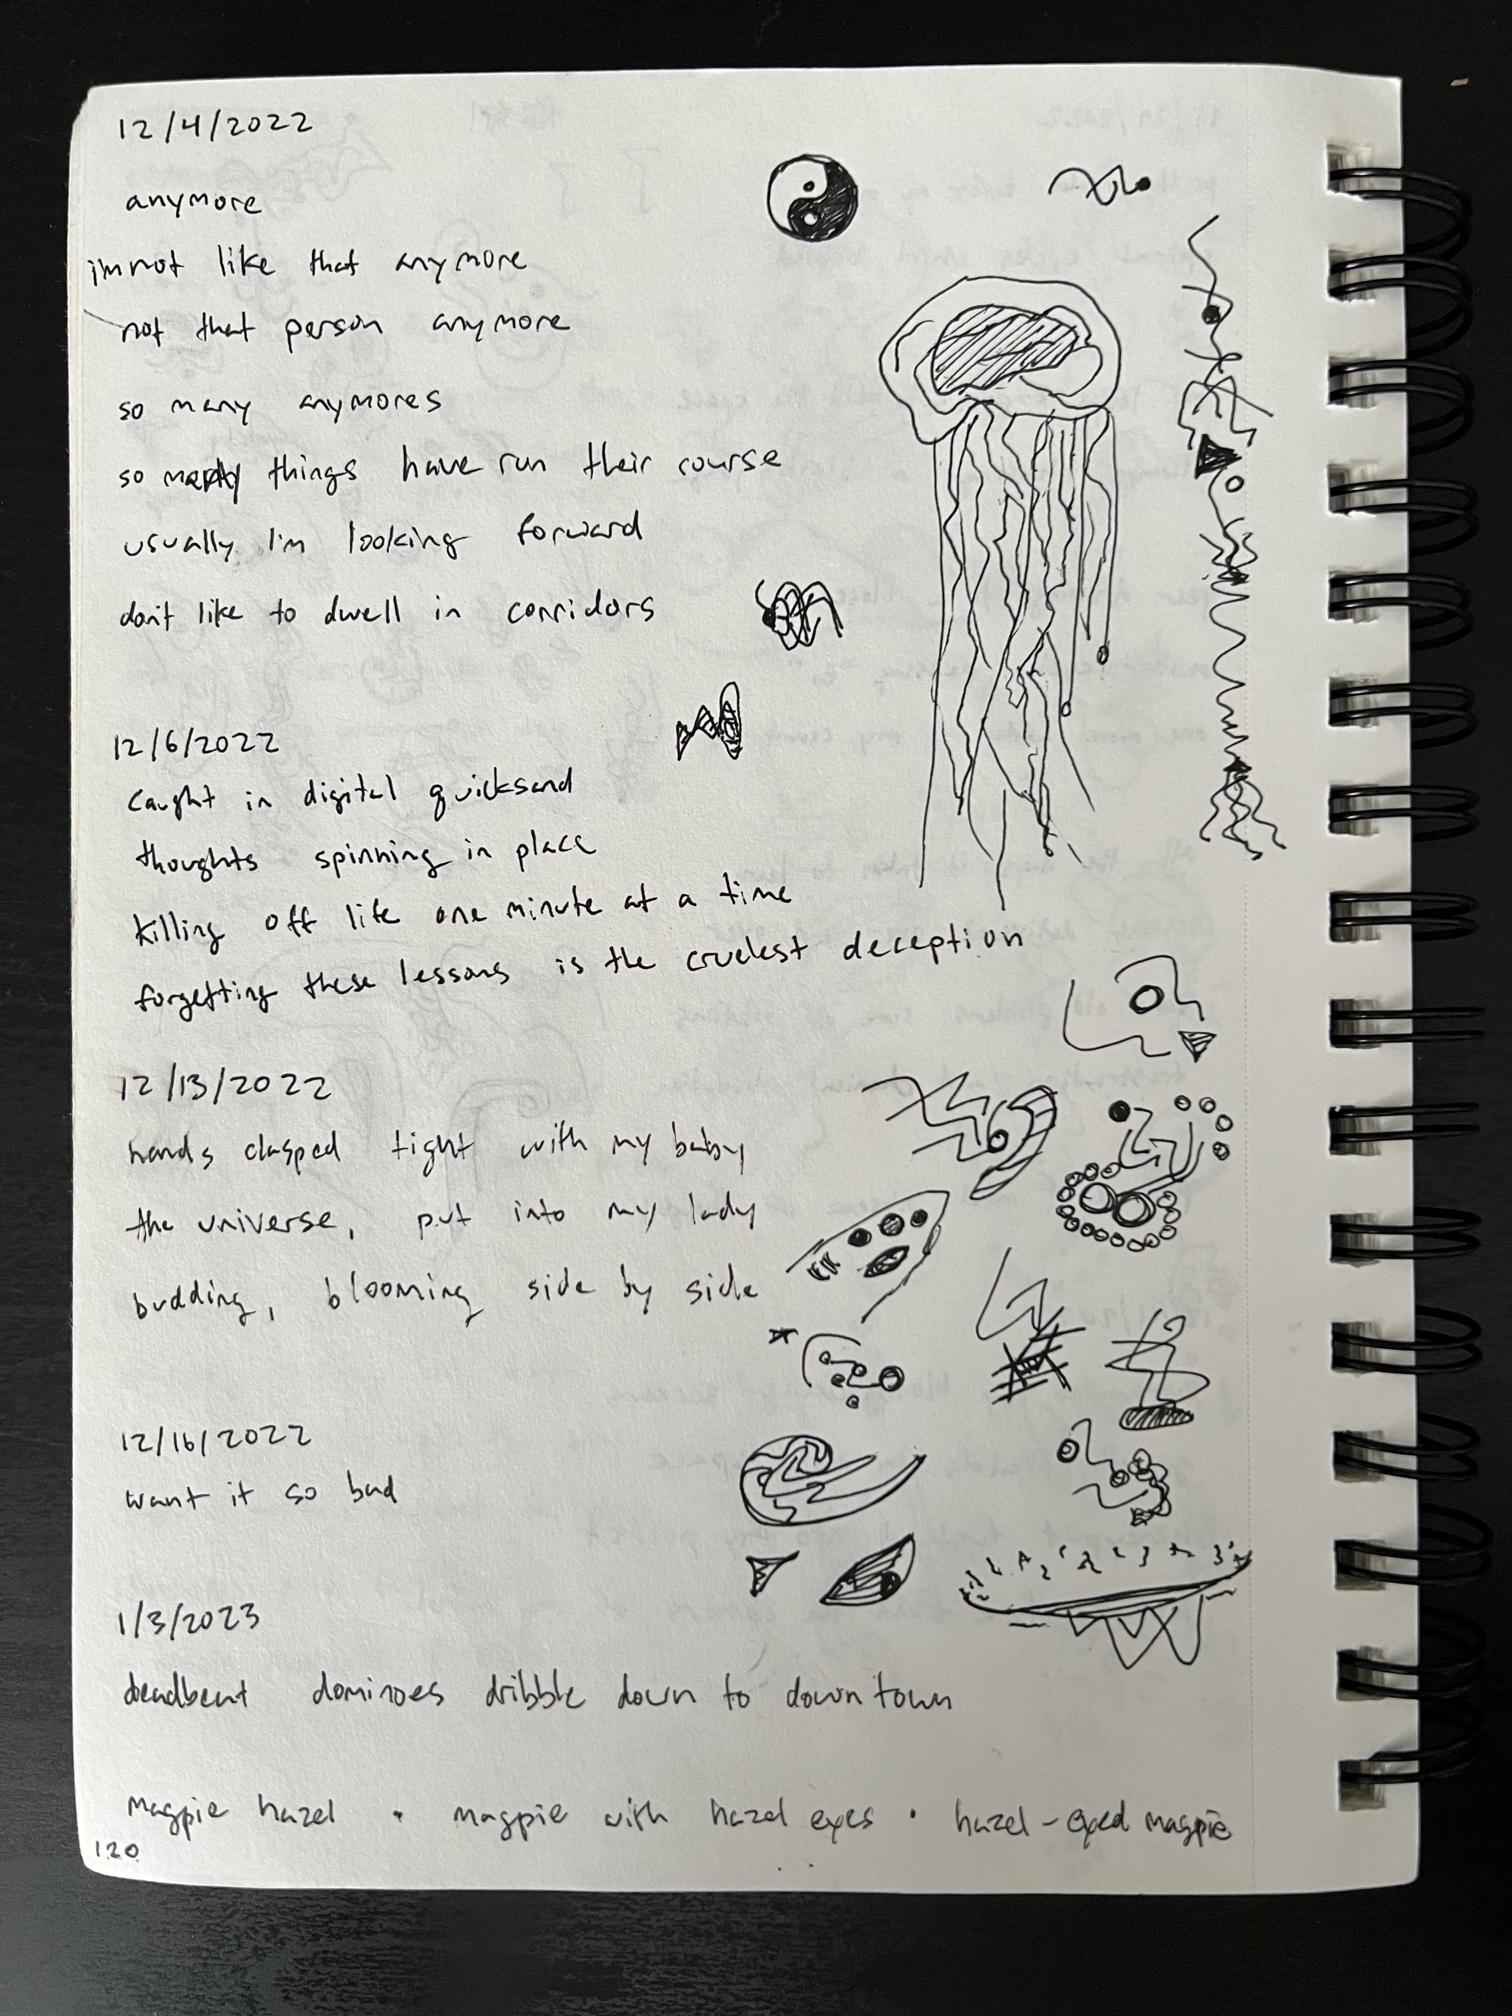 12/4/2022
anymore
i'm not like that anymore
not that person anymore
so many anymores
so many things have run their course
usually I'm looking forward
don't like to dwell in corridors
12/6/2022
caught in digital quicksand
thoughts spinning in place
killing off life one minute at a time
forgetting these lessons is the cruelest deception
12/13/2022
hands clasped tight with my baby
the universe, put into my lady
budding, blooming side by side
12/16/2022
want it so bad
1/3/2023
deadbeat dominoes dribble down to downtown
magpie hazel • magpie with hazel eyes • hazel-eyed magpie
120